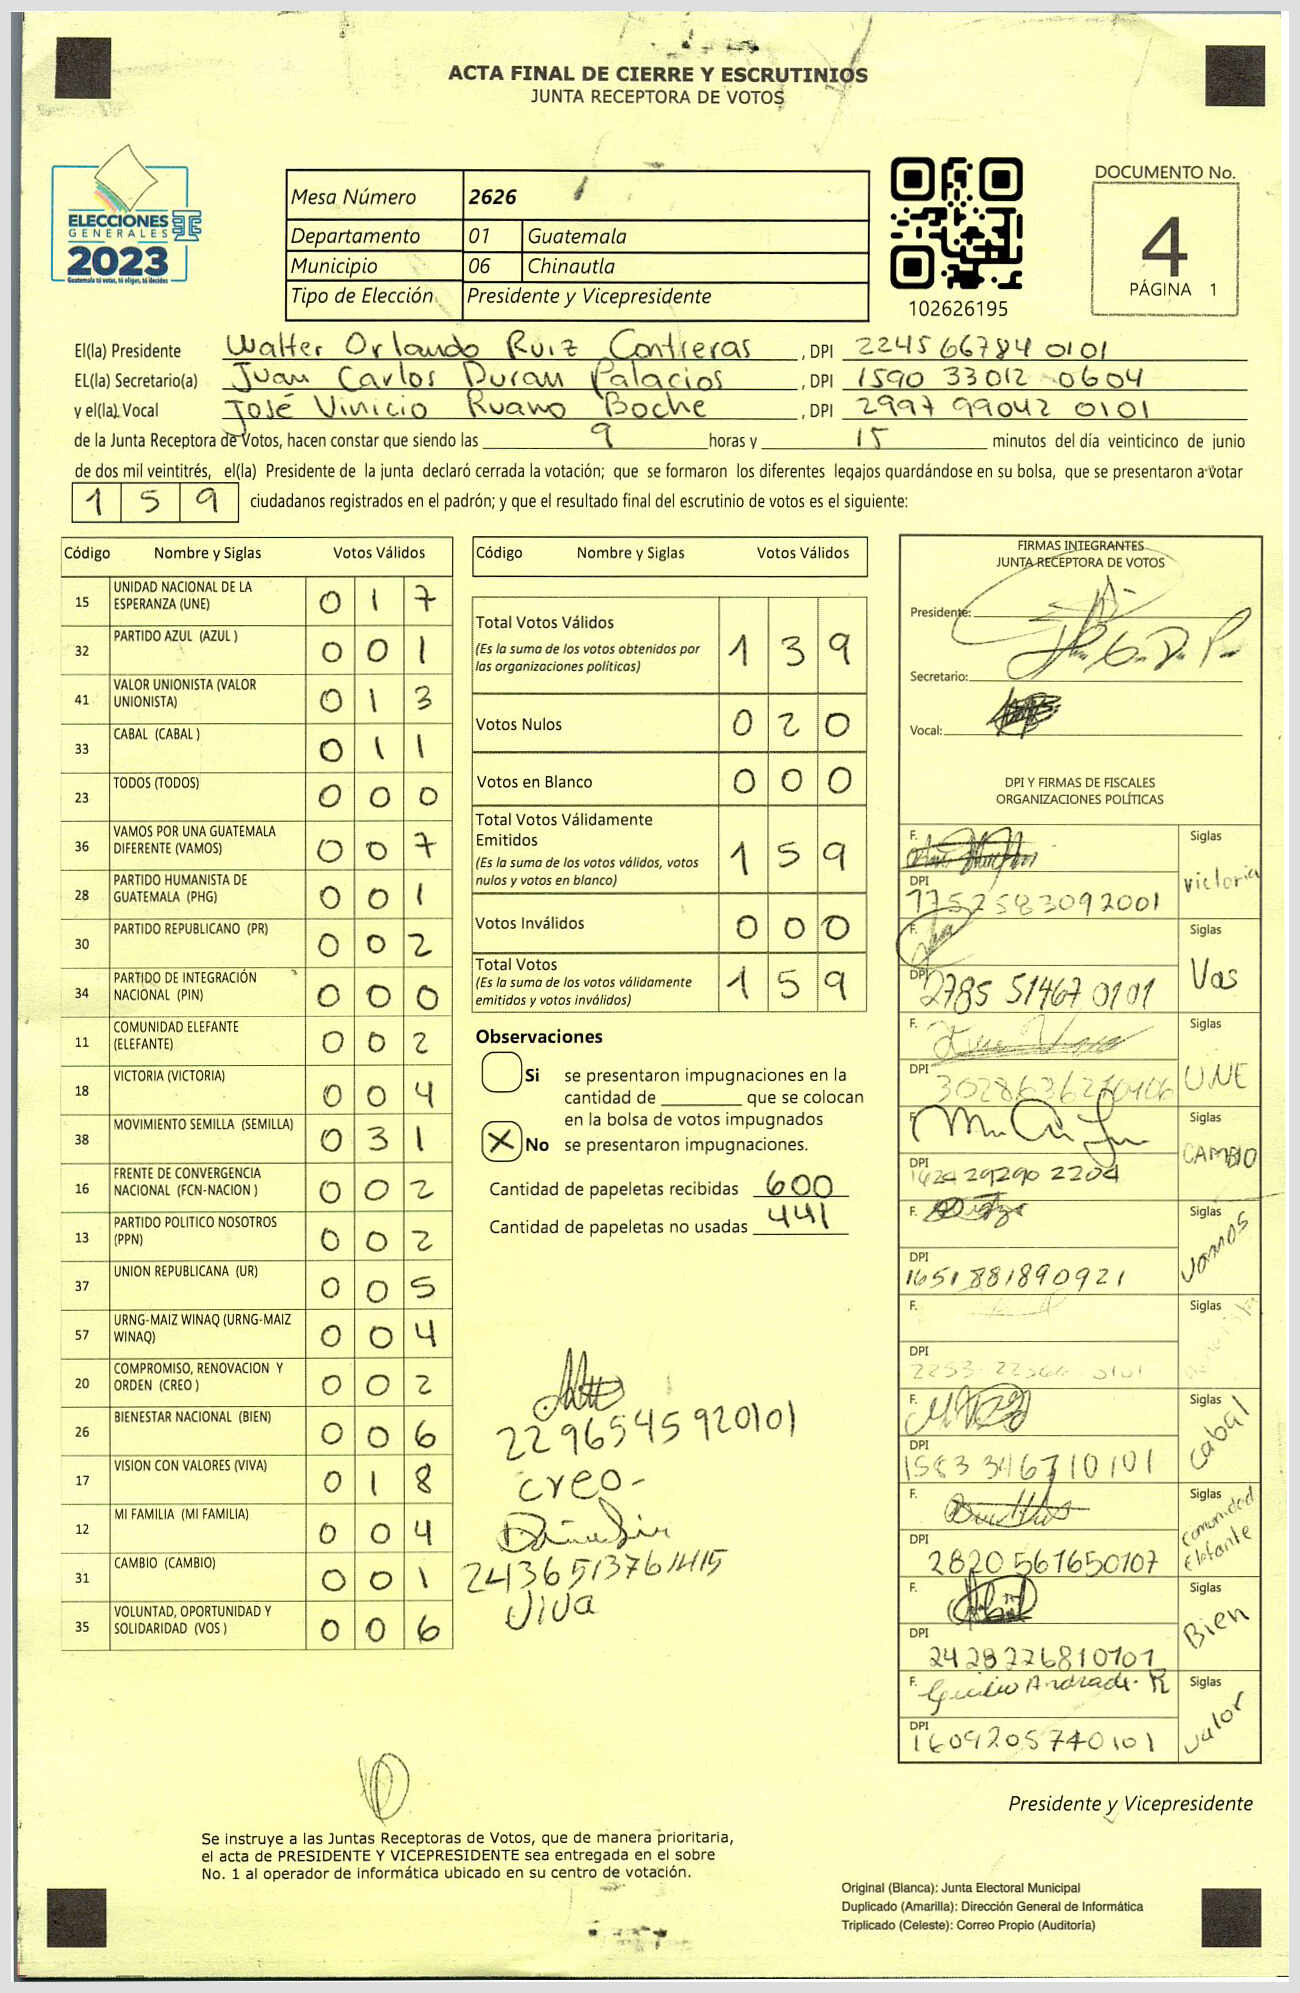 ACTA FINAL DE CIERRE Y ESCRUTINIOS
JUNTA RECEPTORA DE VOTOS
ELECCIONES
GENERALES
2023
Guatemala tú votas, tú eliges, tú decides
Mesa Número 2626
Departamento 01 Guatemala
Municipio 06 Chinautla
Tipo de Elección Presidente y Vicepresidente
102626195
DOCUMENTO No.
4
PÁGINA 1
El(la) Presidente Walter Orlando Ruiz Contreras , DPI 224566784 0101
EL(la) Secretario(a) Juan Carlos Duran Palacios , DPI 1590 33012 0604
y el(la). Vocal José Vinicio Ruano Boche , DPI 2997 99042 0101
de la Junta Receptora de Votos, hacen constar que siendo las 9 horas y 15 minutos del día veinticinco de junio
de dos mil veintitrés, el(la) Presidente de la junta declaró cerrada la votación; que se formaron los diferentes legajos quardándose en su bolsa, que se presentaron a votar
1 5 9 ciudadanos registrados en el padrón; y que el resultado final del escrutinio de votos es el siguiente:
Código Nombre y Siglas Votos Válidos
15 UNIDAD NACIONAL DE LA ESPERANZA (UNE) 0 1 7
32 PARTIDO AZUL (AZUL ) 0 0 1
41 VALOR UNIONISTA (VALOR UNIONISTA) 0 1 3
33 CABAL (CABAL ) 0 1 1
23 TODOS (TODOS) 0 0 0
36 VAMOS POR UNA GUATEMALA DIFERENTE (VAMOS) 0 0 7
28 PARTIDO HUMANISTA DE GUATEMALA (PHG) 0 0 1
30 PARTIDO REPUBLICANO (PR) 0 0 2
34 PARTIDO DE INTEGRACIÓN NACIONAL (PIN) 0 0 0
11 COMUNIDAD ELEFANTE (ELEFANTE) 0 0 2
18 VICTORIA (VICTORIA) 0 0 4
38 MOVIMIENTO SEMILLA (SEMILLA) 0 3 1
16 FRENTE DE CONVERGENCIA NACIONAL (FCN-NACION ) 0 0 2
13 PARTIDO POLITICO NOSOTROS (PPN) 0 0 2
37 UNION REPUBLICANA (UR) 0 0 5
57 URNG-MAIZ WINAQ (URNG-MAIZ WINAQ) 0 0 4
20 COMPROMISO, RENOVACION Y ORDEN (CREO ) 0 0 2
26 BIENESTAR NACIONAL (BIEN) 0 0 6
17 VISION CON VALORES (VIVA) 0 1 8
12 MI FAMILIA (MI FAMILIA) 0 0 4
31 CAMBIO (CAMBIO) 0 0 1
35 VOLUNTAD, OPORTUNIDAD Y SOLIDARIDAD (VOS ) 0 0 6
Código Nombre y Siglas Votos Válidos
Total Votos Válidos 1 3 9
(Es la suma de los votos obtenidos por
las organizaciones políticas)
Votos Nulos 0 2 0
Votos en Blanco 0 0 0
Total Votos Válidamente
Emitidos 1 5 9
(Es la suma de los votos válidos, votos
nulos y votos en blanco)
Votos Inválidos 0 0 0
Total Votos 1 5 9
(Es la suma de los votos válidamente
emitidos y votos inválidos)
Observaciones
Si se presentaron impugnaciones en la
cantidad de ________ que se colocan
en la bolsa de votos impugnados
X No se presentaron impugnaciones.
Cantidad de papeletas recibidas 600
Cantidad de papeletas no usadas 441
2296545920101
creo-
2436513761415
Viva
FIRMAS INTEGRANTES
JUNTA RECEPTORA DE VOTOS
Presidente:
Secretario:
Vocal:
DPI Y FIRMAS DE FISCALES
ORGANIZACIONES POLÍTICAS
F. Siglas
victoria
DPI
1752583092001
F. Siglas
Vos
DPI
2785 51467 0101
F. Siglas
UNE
DPI
F. Siglas
CAMBIO
DPI
1624 29290 2204
F. Siglas
Vamos
DPI
1651881890921
F. Siglas
DPI
F. Siglas
cabal
DPI
1583346710101
F. Siglas
comunidad
Elefante
DPI
2820561650107
F. Siglas
Bien
DPI
2428226810101
F. Andrade R Siglas
Valor
DPI
1609205740101
Presidente y Vicepresidente
Se instruye a las Juntas Receptoras de Votos, que de manera prioritaria,
el acta de PRESIDENTE Y VICEPRESIDENTE sea entregada en el sobre
No. 1 al operador de informática ubicado en su centro de votación.
Original (Blanca): Junta Electoral Municipal
Duplicado (Amarilla): Dirección General de Informática
Triplicado (Celeste): Correo Propio (Auditoría)